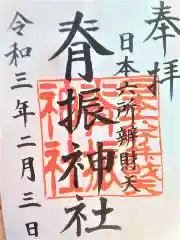 奉拝
日本六所辨財天
脊振神社
令和三年二月三日